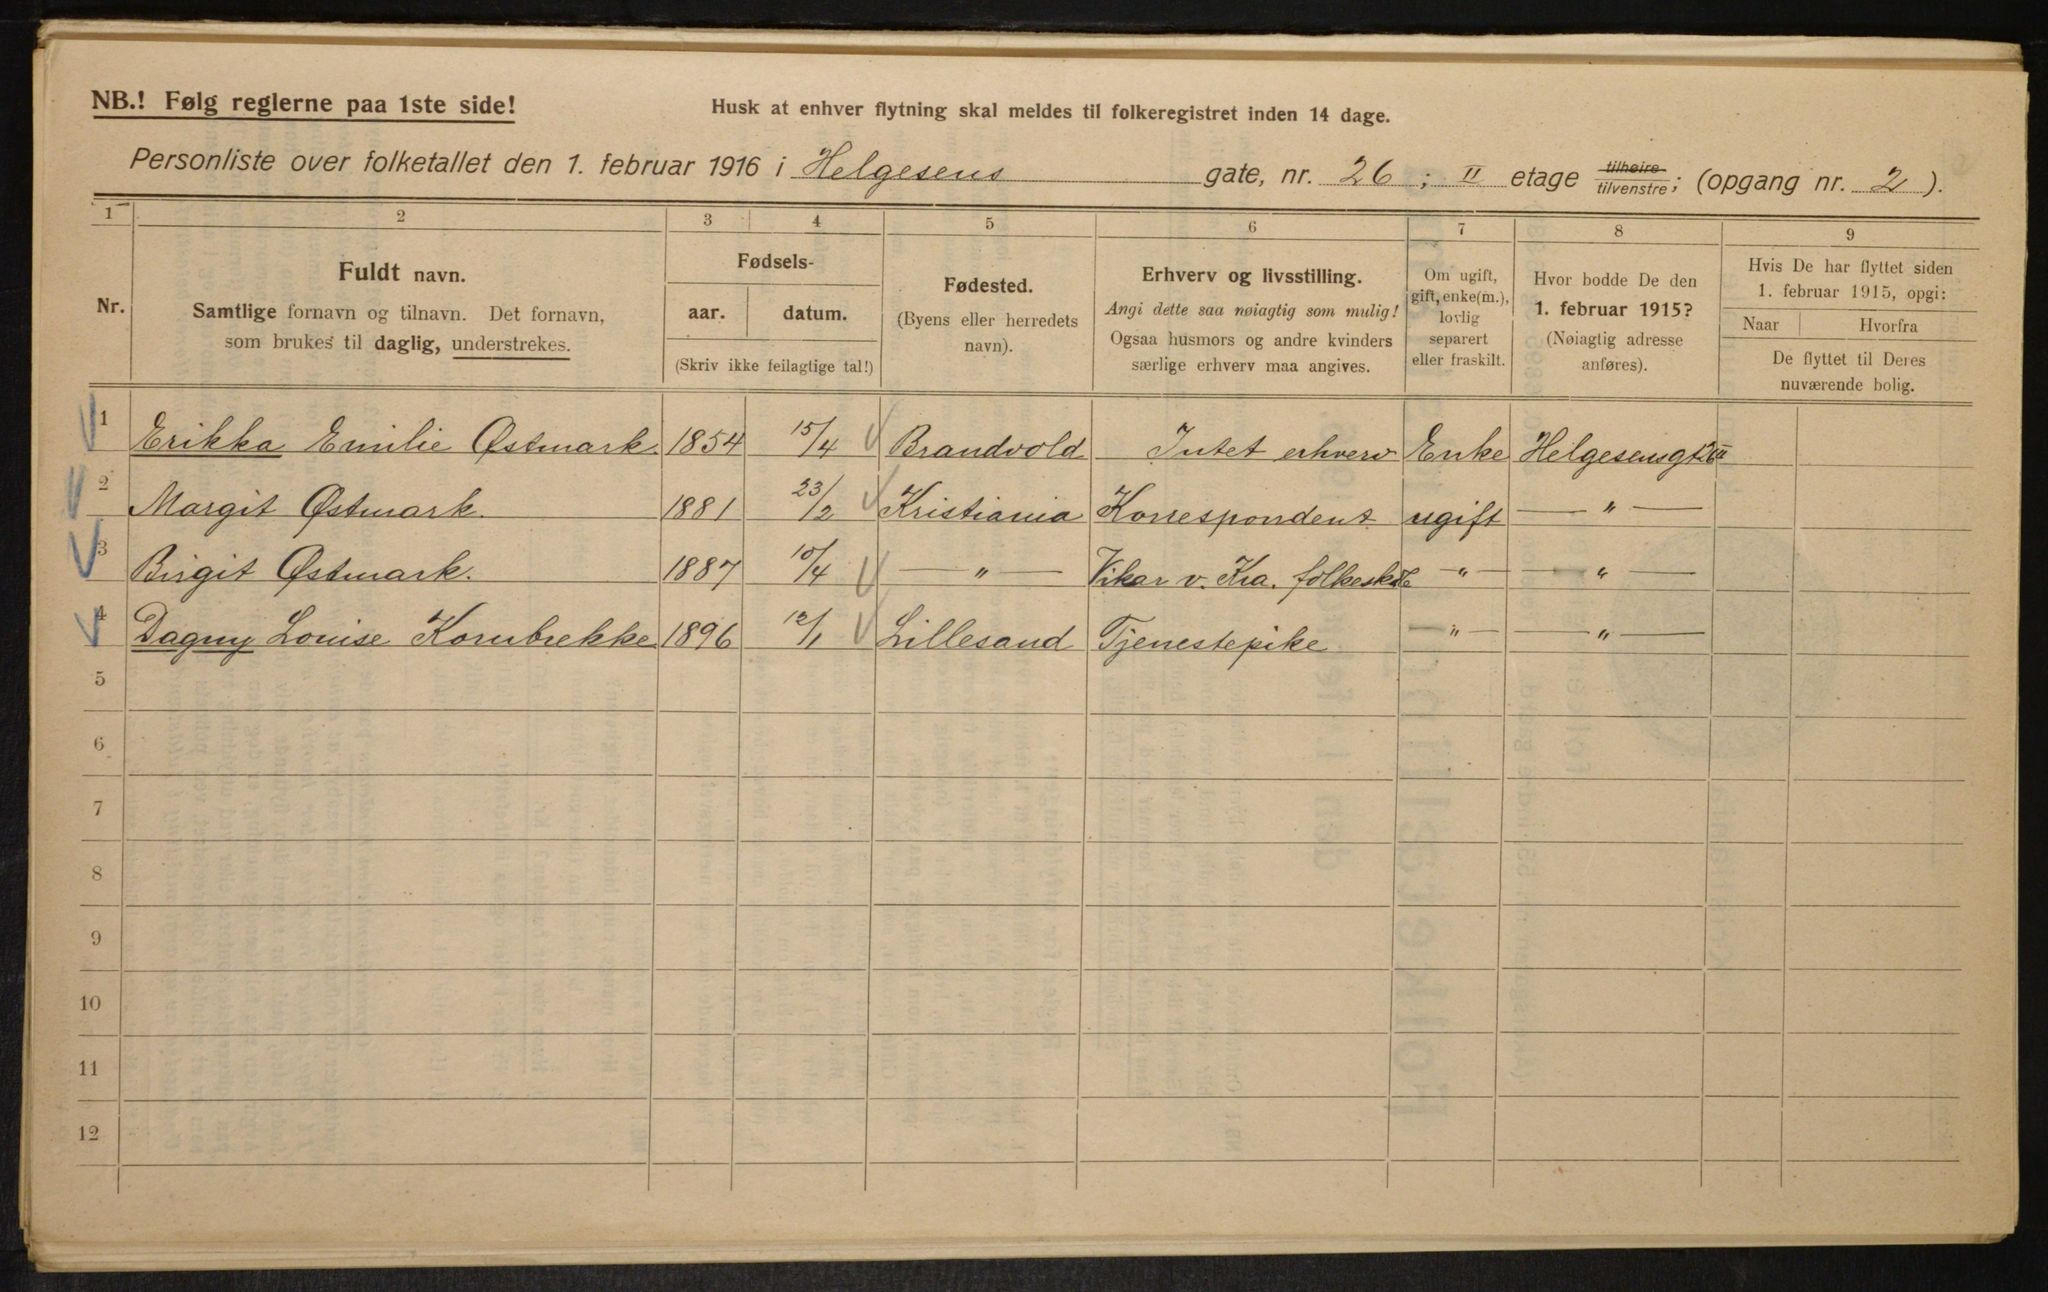 NB.! Følg reglerne paa 1ste side!
Husk at enhver flytning skal meldes til folkeregistret inden 14 dage.
Personliste over folketallet den 1. februar 1916 i Helgesens gate, nr. 26 ; II etage tilhøire tilvenstre; (opgang nr. 2 ).
1 2 3 4 5 6 7 8 9
Nr.
Fuldt navn.
Samtlige fornavn og tilnavn. Det fornavn,
som brukes til daglig, understrekes.
Fødsels-
aar. datum.
(Skriv ikke feilagtige tal!)
Fødested.
(Byens eller herredets
navn).
Erhverv og livsstilling.
Angi dette saa nøiagtig som mulig!
Ogsaa husmors og andre kvinders
særlige erhverv maa angives.
Om ugift,
gift, enke(m.),
lovlig
separert
eller fraskilt.
Hvor bodde De den
1. februar 1915?
(Nøiagtig adresse
anføres).
Hvis De har flyttet siden
1. februar 1915, opgi:
Naar Hvorfra
De flyttet til Deres
nuværende bolig.
1 Erikka Emilie Østmark. 1854 15/4 Brandvold Intet erhverv Enke Helgesensgt
2 Margit Østmark. 1881 23/2 Kristiania Korrespondent ugift — " —
3 Birgit Østmark. 1887 10/4 — " — Vikar v. Kra. — " — — " —
4 Dagny Louise Kornbrekke 1896 12/1 Lillesand Tjenestepike — " — — " —
5
6
7
8
9
10
11
12